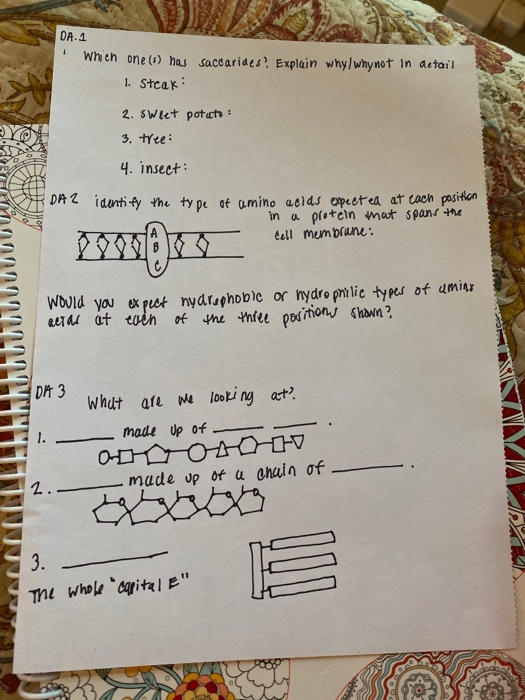 DA.1
Which one(s) has saccarides? Explain why/whynot in detail
1. Steak:
2. sweet potato:
3. tree:
4. insect:
DA 2 identify the type of amino acids expected at each position
in a protein that spans the
cell membrane:
A
B
C
Would you expect hydrophobic or hydrophilic types of amino
acids at each of the three positions shown?
DA 3 What are we looking at?
1. ______ made up of ______ ______.
2. ______ made up of a chain of ______.
3. ______
The whole "capital E"